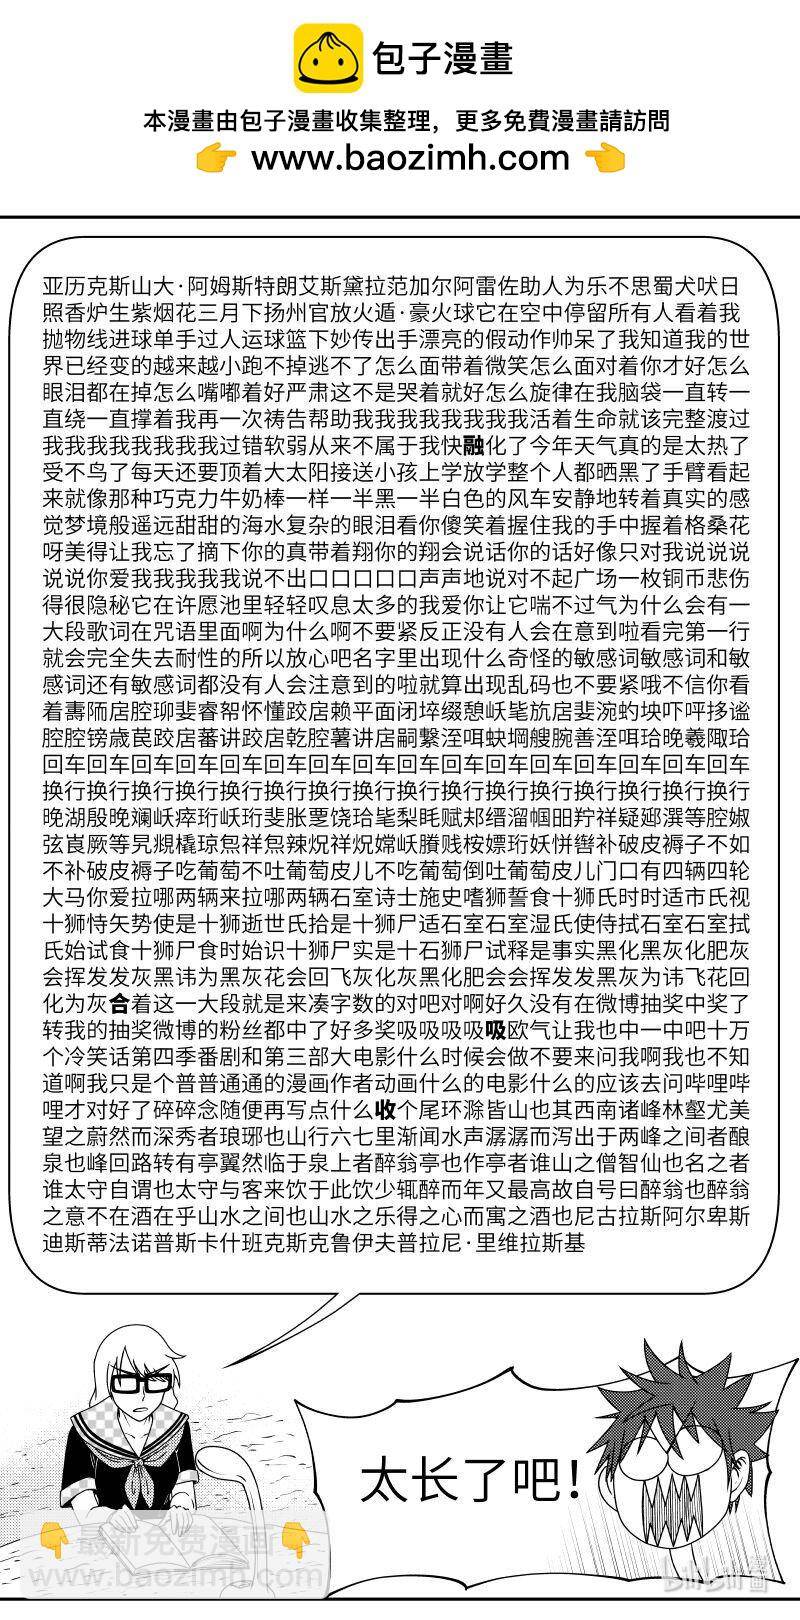 包子漫畫
本漫畫由包子漫畫收集整理，更多免費漫畫請訪問
👉 www.baozimh.com 👈
亚历克斯山大·阿姆斯特朗艾斯黛拉范加尔阿雷佐助人为乐不思蜀犬吠日
照香炉生紫烟花三月下扬州官放火遁·豪火球它在空中停留所有人看着我
抛物线进球单手过人运球篮下妙传出手漂亮的假动作帅呆了我知道我的世
界已经变的越来越小跑不掉逃不了怎么面带着微笑怎么面对着你才好怎么
眼泪都在掉怎么嘴嘟着好严肃这不是哭着就好怎么旋律在我脑袋一直转一
直绕一直撑着我再一次祷告帮助我我我我我我我我活着生命就该完整渡过
我我我我我我我我过错软弱从来不属于我快融化了今年天气真的是太热了
受不鸟了每天还要顶着大太阳接送小孩上学放学整个人都晒黑了手臂看起
来就像那种巧克力牛奶棒一样一半黑一半白色的风车安静地转着真实的感
觉梦境般遥远甜甜的海水复杂的眼泪看你傻笑着握住我的手中握着格桑花
呀美得让我忘了摘下你的真带着翔你的翔会说话你的话好像只对我说说说
说说你爱我我我我我说不出口口口口口声声地说对不起广场一枚铜币悲伤
得很隐秘它在许愿池里轻轻叹息太多的我爱你让它喘不过气为什么会有一
大段歌词在咒语里面啊为什么啊不要紧反正没有人会在意到啦看完第一行
就会完全失去耐性的所以放心吧名字里出现什么奇怪的敏感词敏感词和敏
感词还有敏感词都没有人会注意到的啦就算出现乱码也不要紧哦不信你看
回车回车回车回车回车回车回车回车回车回车回车回车回车回车回车回车
换行换行换行换行换行换行换行换行换行换行换行换行换行换行换行换行
不补破皮褥子吃葡萄不吐葡萄皮儿不吃葡萄倒吐葡萄皮儿门口有四辆四轮
大马你爱拉哪两辆来拉哪两辆石室诗士施史嗜狮誓食十狮氏时时适市氏视
十狮恃矢势使是十狮逝世氏拾是十狮尸适石室石室湿氏使侍拭石室石室拭
氏始试食十狮尸食时始识十狮尸实是十石狮尸试释是事实黑化黑灰化肥灰
会挥发发灰黑讳为黑灰花会回飞灰化灰黑化肥会会挥发发黑灰为讳飞花回
化为灰合着这一大段就是来凑字数的对吧对啊好久没有在微博抽奖中奖了
转我的抽奖微博的粉丝都中了好多奖吸吸吸吸吸欧气让我也中一中吧十万
个冷笑话第四季番剧和第三部大电影什么时候会做不要来问我啊我也不知
道啊我只是个普普通通的漫画作者动画什么的电影什么的应该去问哔哩哔
哩才对好了碎碎念随便再写点什么收个尾环滁皆山也其西南诸峰林壑尤美
望之蔚然而深秀者琅琊也山行六七里渐闻水声潺潺而泻出于两峰之间者酿
泉也峰回路转有亭翼然临于泉上者醉翁亭也作亭者谁山之僧智仙也名之者
谁太守自谓也太守与客来饮于此饮少辄醉而年又最高故自号曰醉翁也醉翁
之意不在酒在乎山水之间也山水之乐得之心而寓之酒也尼古拉斯阿尔卑斯
迪斯蒂法诺普斯卡什班克斯克鲁伊夫普拉尼·里维拉斯基
太长了吧！
👇 最新免费漫画 👇
www.baozimh.com
bilibili